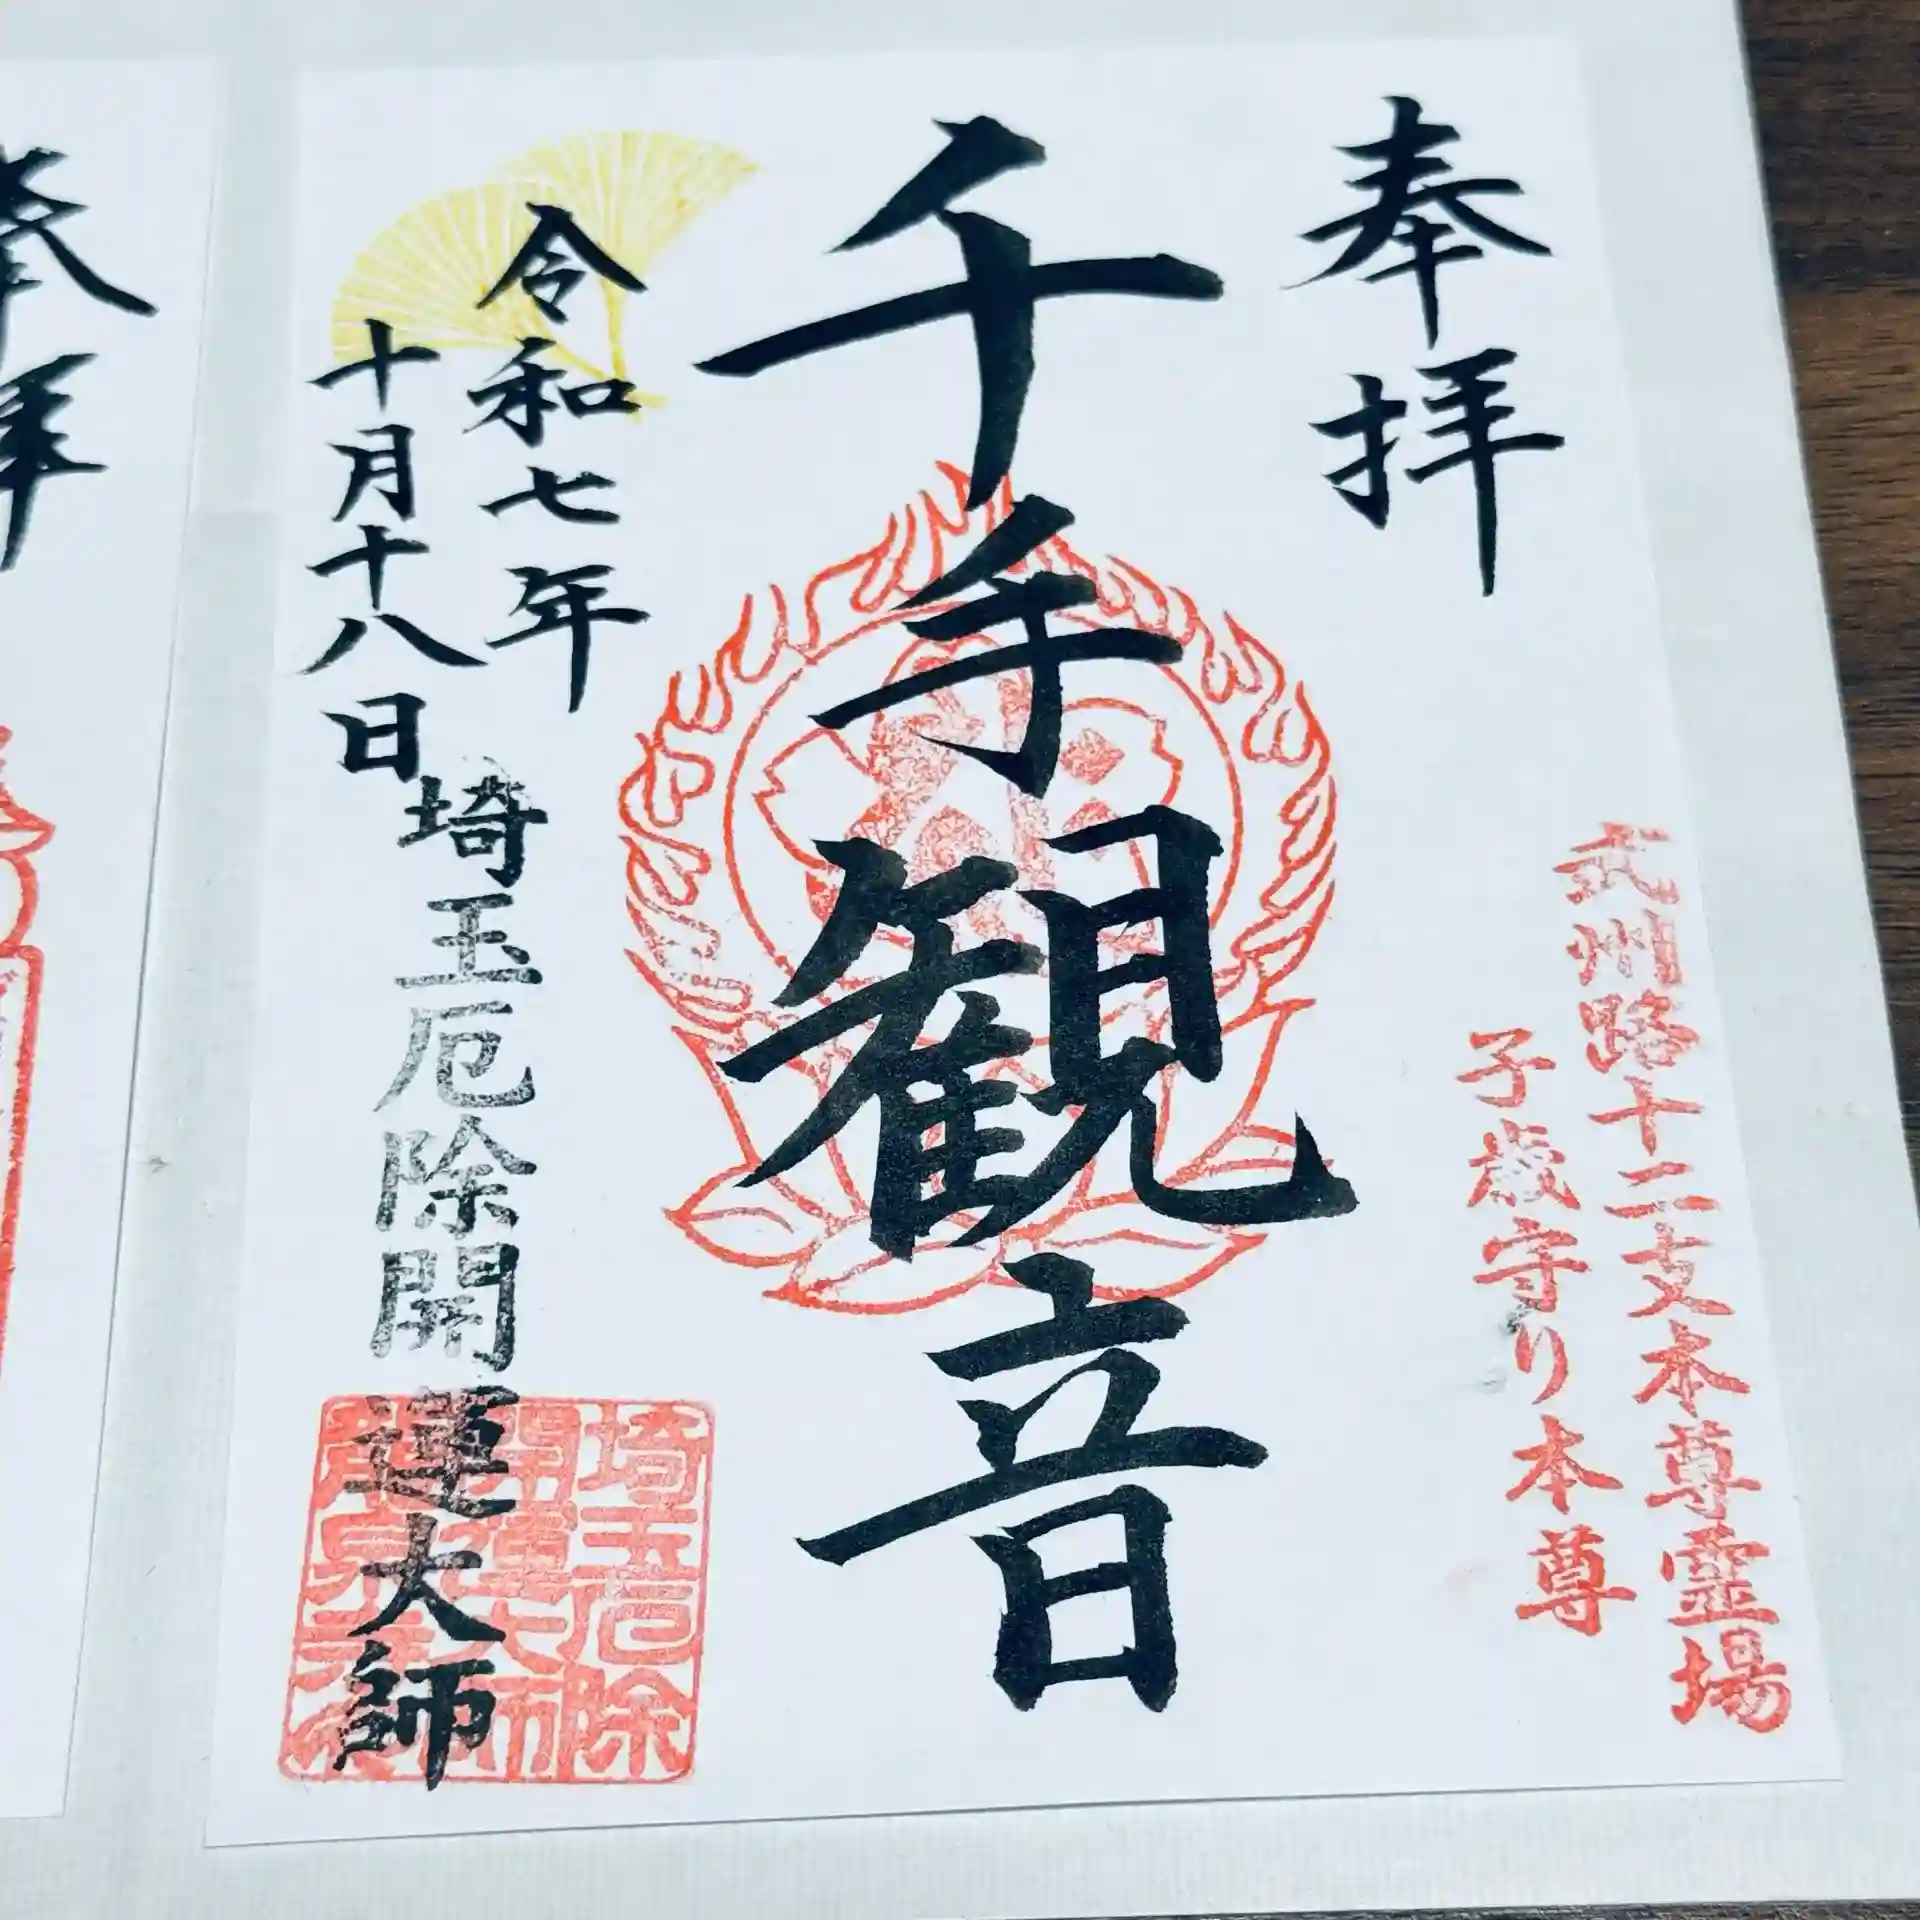 奉拝
武州路十二支本尊霊場
子歳守り本尊
千手観音
令和七年
十月十八日
埼玉厄除開運大師
埼玉厄除
開運大師
龍泉寺
奉拝